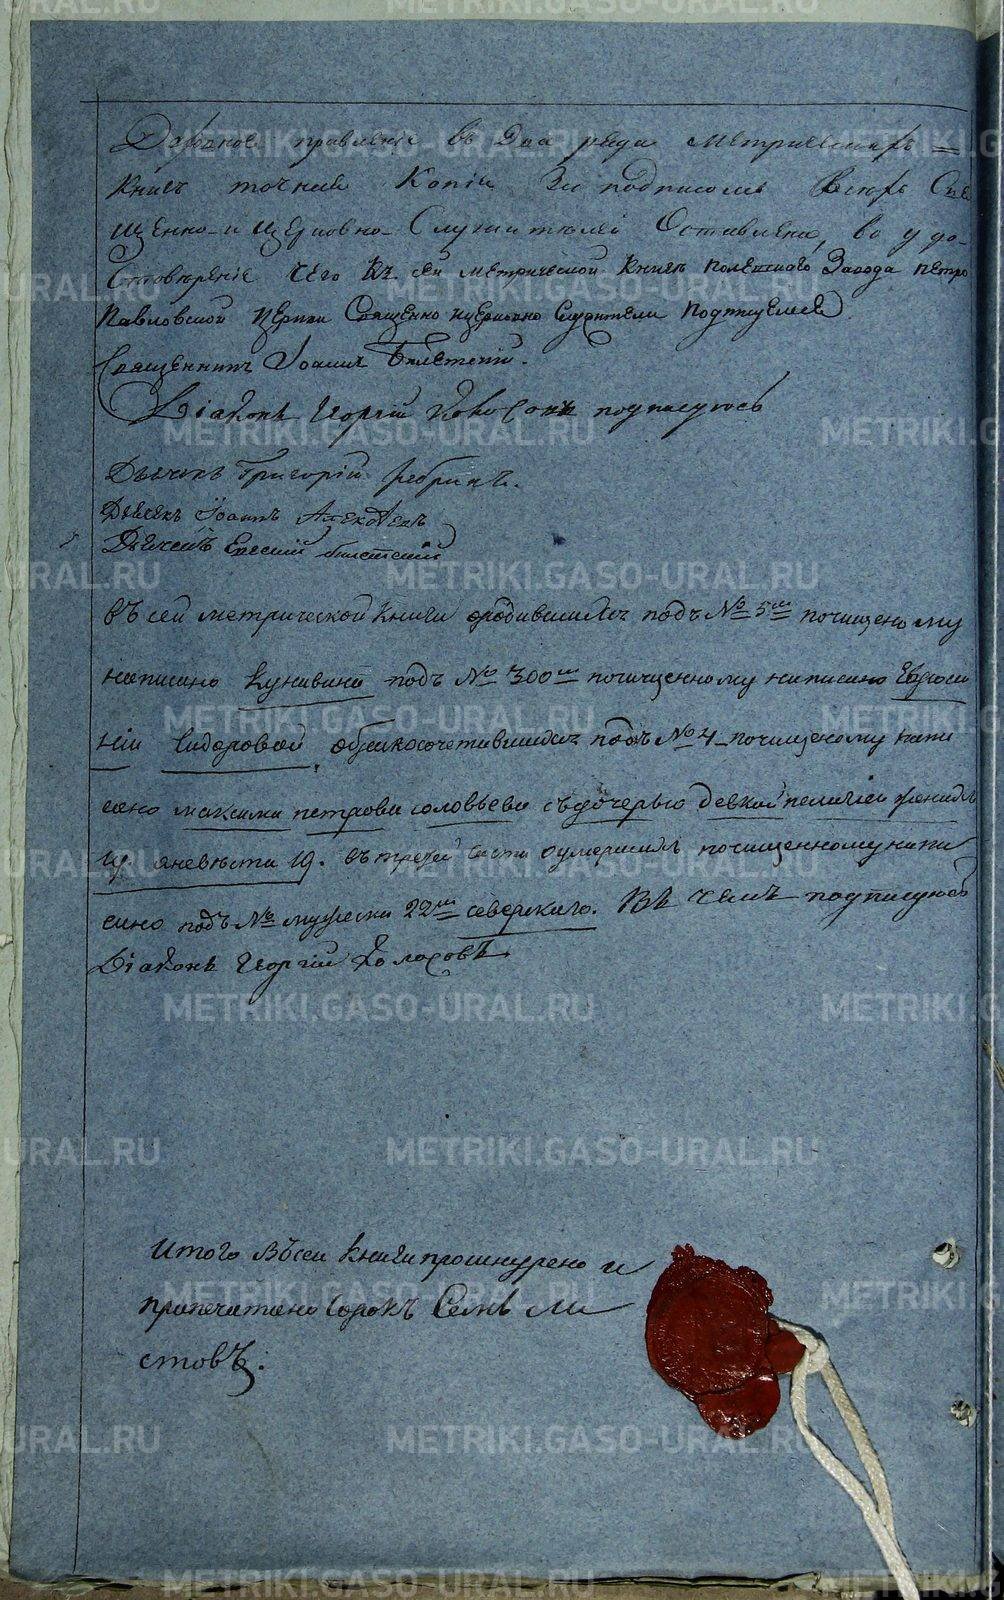 правленіе въ Два ряда метрическихъ
Книгъ точная Копія За подписомъ всехъ Свя
щенно- и церковно- Служителей Оставлена, во удо-
стовѣреніе чего Къ сей метрической Книгѣ Полевскаго Завода Петро
Павловской церкви Священно иЦерковно Служители Подписуемся
Священникъ Іоаннъ
Діаконъ Георгій Колосовъ подписуюсь
Дьячекъ Григорій Ребринъ.
Дьячекъ Іоаннъ
Дьячекъ
въ сей метрической книги ородившихся подъ № 5мъ почищеному
написано Кунавина подъ № 300мъ почищенному написано Евдоси
ніи Сидоровой, обракосочетавшихся подъ № 4 почищеному напи
сано максима петрова соловьева съдочерью девкой пелагіей
яневѣста 19. въ третей части оумершихъ почищенному напи
сано подъ № мужеска 22мъ северскаго. Въ чемъ подписуюсь
Діаконъ Георгій Колосовъ
Итого Въсей книги прошнурено и
припечатано Сорокъ Семь ли
стовъ.
METRIKI.GASO-URAL.RU